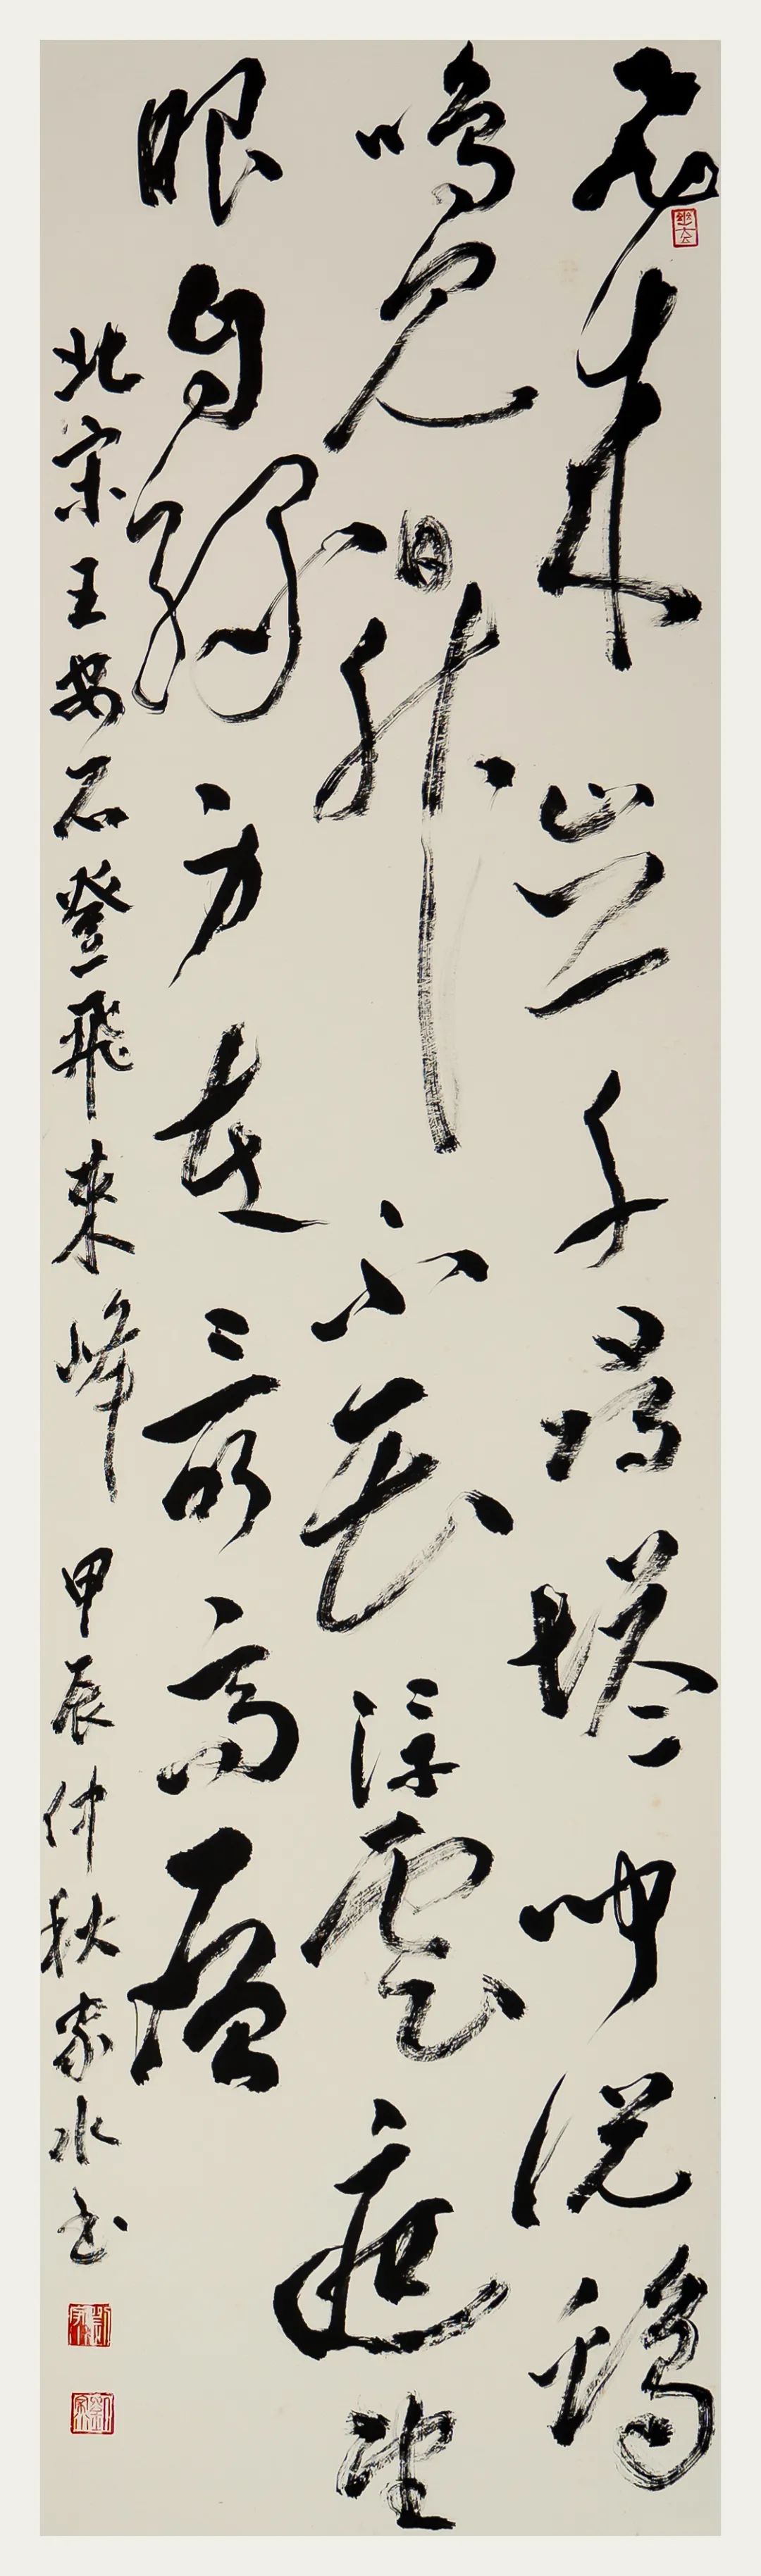 飛來山上千尋塔聞説鷄
鳴見日升不畏浮雲遮望
眼自緣身在最高層
北宋王安石登飛來峰 甲辰仲秋家水书